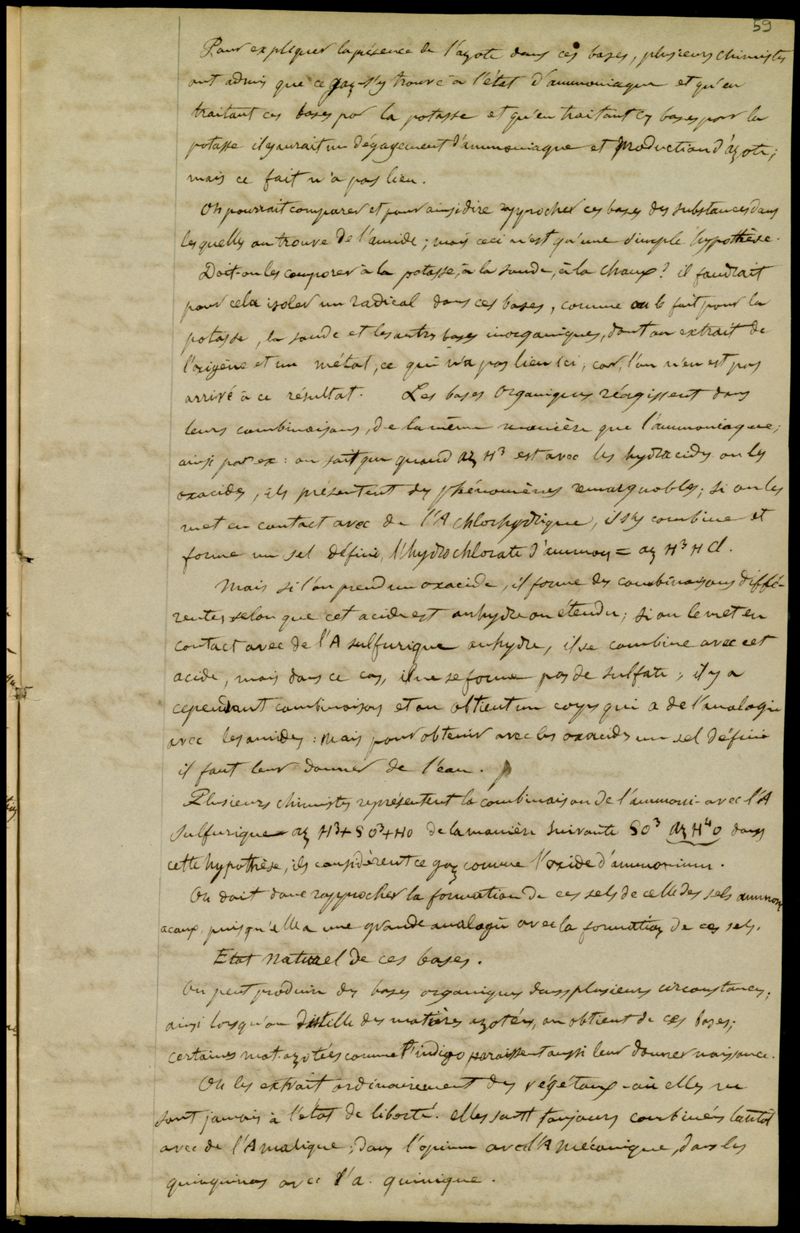 59
Pour expliquer la présence de l'azote dans ces bases, plusieurs chimistes
ont admis que ce gaz s'y trouve à l'état d'ammoniaque et qu'en
traitant ces bases par la potasse et qu'en traitant ces bases par la
potasse il y aurait un dégagement d'ammoniaque et production d'azote;
mais ce fait n'a pas lieu.
On pourrait comparer et pour ainsi dire rapprocher ces bases des substances dans
lesquelles on trouve de l'amide; mais ceci n'est qu'une simple hypothèse.
Doit on les comparer à la potasse, à la soude, à la chaux? il faudrait
pour cela isoler un radical dans ces bases, comme on le fait pour la
potasse, la soude et les autres bases inorganiques, dont on extrait de
l'oxigène et un métal, ce qui n'a pas lieu ici, car l'on n'en est pas
arrivé à ce résultat. Les bases organiques réagissent dans
leurs combinaisons, de la même manière que l'ammoniaque;
ainsi par ex: on sait que quand az H³ est avec les hydracides ou les
oxacides, ils présentent des phénomènes remarquables; si on les
met en contact avec de l'A chlorhydrique, il s'y combine et
forme un sel défini, l'hydrochlorate d'ammon = az H³ H Cl.
Mais si l'on prend un oxacide, il forme des combinaisons diffé-
rentes selon que cet acide est anhydre ou étendu; si on le met en
contact avec de l'A sulfurique anhydre, il se combine avec cet
acide, mais dans ce cas, il ne se forme pas de sulfate; il y a
cependant combinaison et on obtient un corps qui a de l'analogie
avec les amides: Mais pour obtenir avec les oxacides un sel défini
il faut leur donner de l'eau.
Plusieurs chimistes représentent la combinaison de l'ammoni- avec l'A
sulfurique az H³ + SO³ + HO de la manière suivante SO³ az H⁴O dans
cette hypothèse, ils considèrent ce gaz comme l'oxide d'ammonium.
On doit donc rapprocher la formation de ces sels de celle des sels ammoni
acaux, puisqu'elle a une grande analogie avec la formation de ces sels.
Etat Naturel de ces bases.
On peut produire des bases organiques dans plusieurs circonstances;
ainsi lorsqu'on distille des matières azotées, on obtient de ces bases;
certaines mat azotées comme l'indigo paraissent aussi leur donner naissance.
On les extrait ordinairement des végétaux où elles ne
sont jamais à l'état de liberté. elles sont toujours combinées tantôt
avec de l'A malique; dans l'opium avec l'A mécanique, dans les
quinquinas avec l'a. quinique.